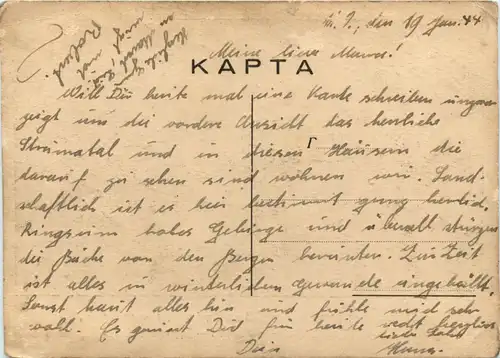 d. 19 Jan. 44
Meine liebe Mama!
КАРТА
Will Dir heute mal eine Karte schreiben
zeigt uns die vordere Ansicht das herrliche
Strumatal und in diesen Häusern die
darauf zu sehen sind wohnen wir. Land-
schaftlich ist es hier bestimmt ganz herrlich.
Ringsum hohes Gebirge und überall stürzen
die Bäche von den Bergen herunten. Zur Zeit
ist alles in winterlichen Gewande eingehüllt.
Sonst haut alles hin und fühle mich sehr
wohl. Es grüsst Dich für heute recht herzlich
Dein Hans